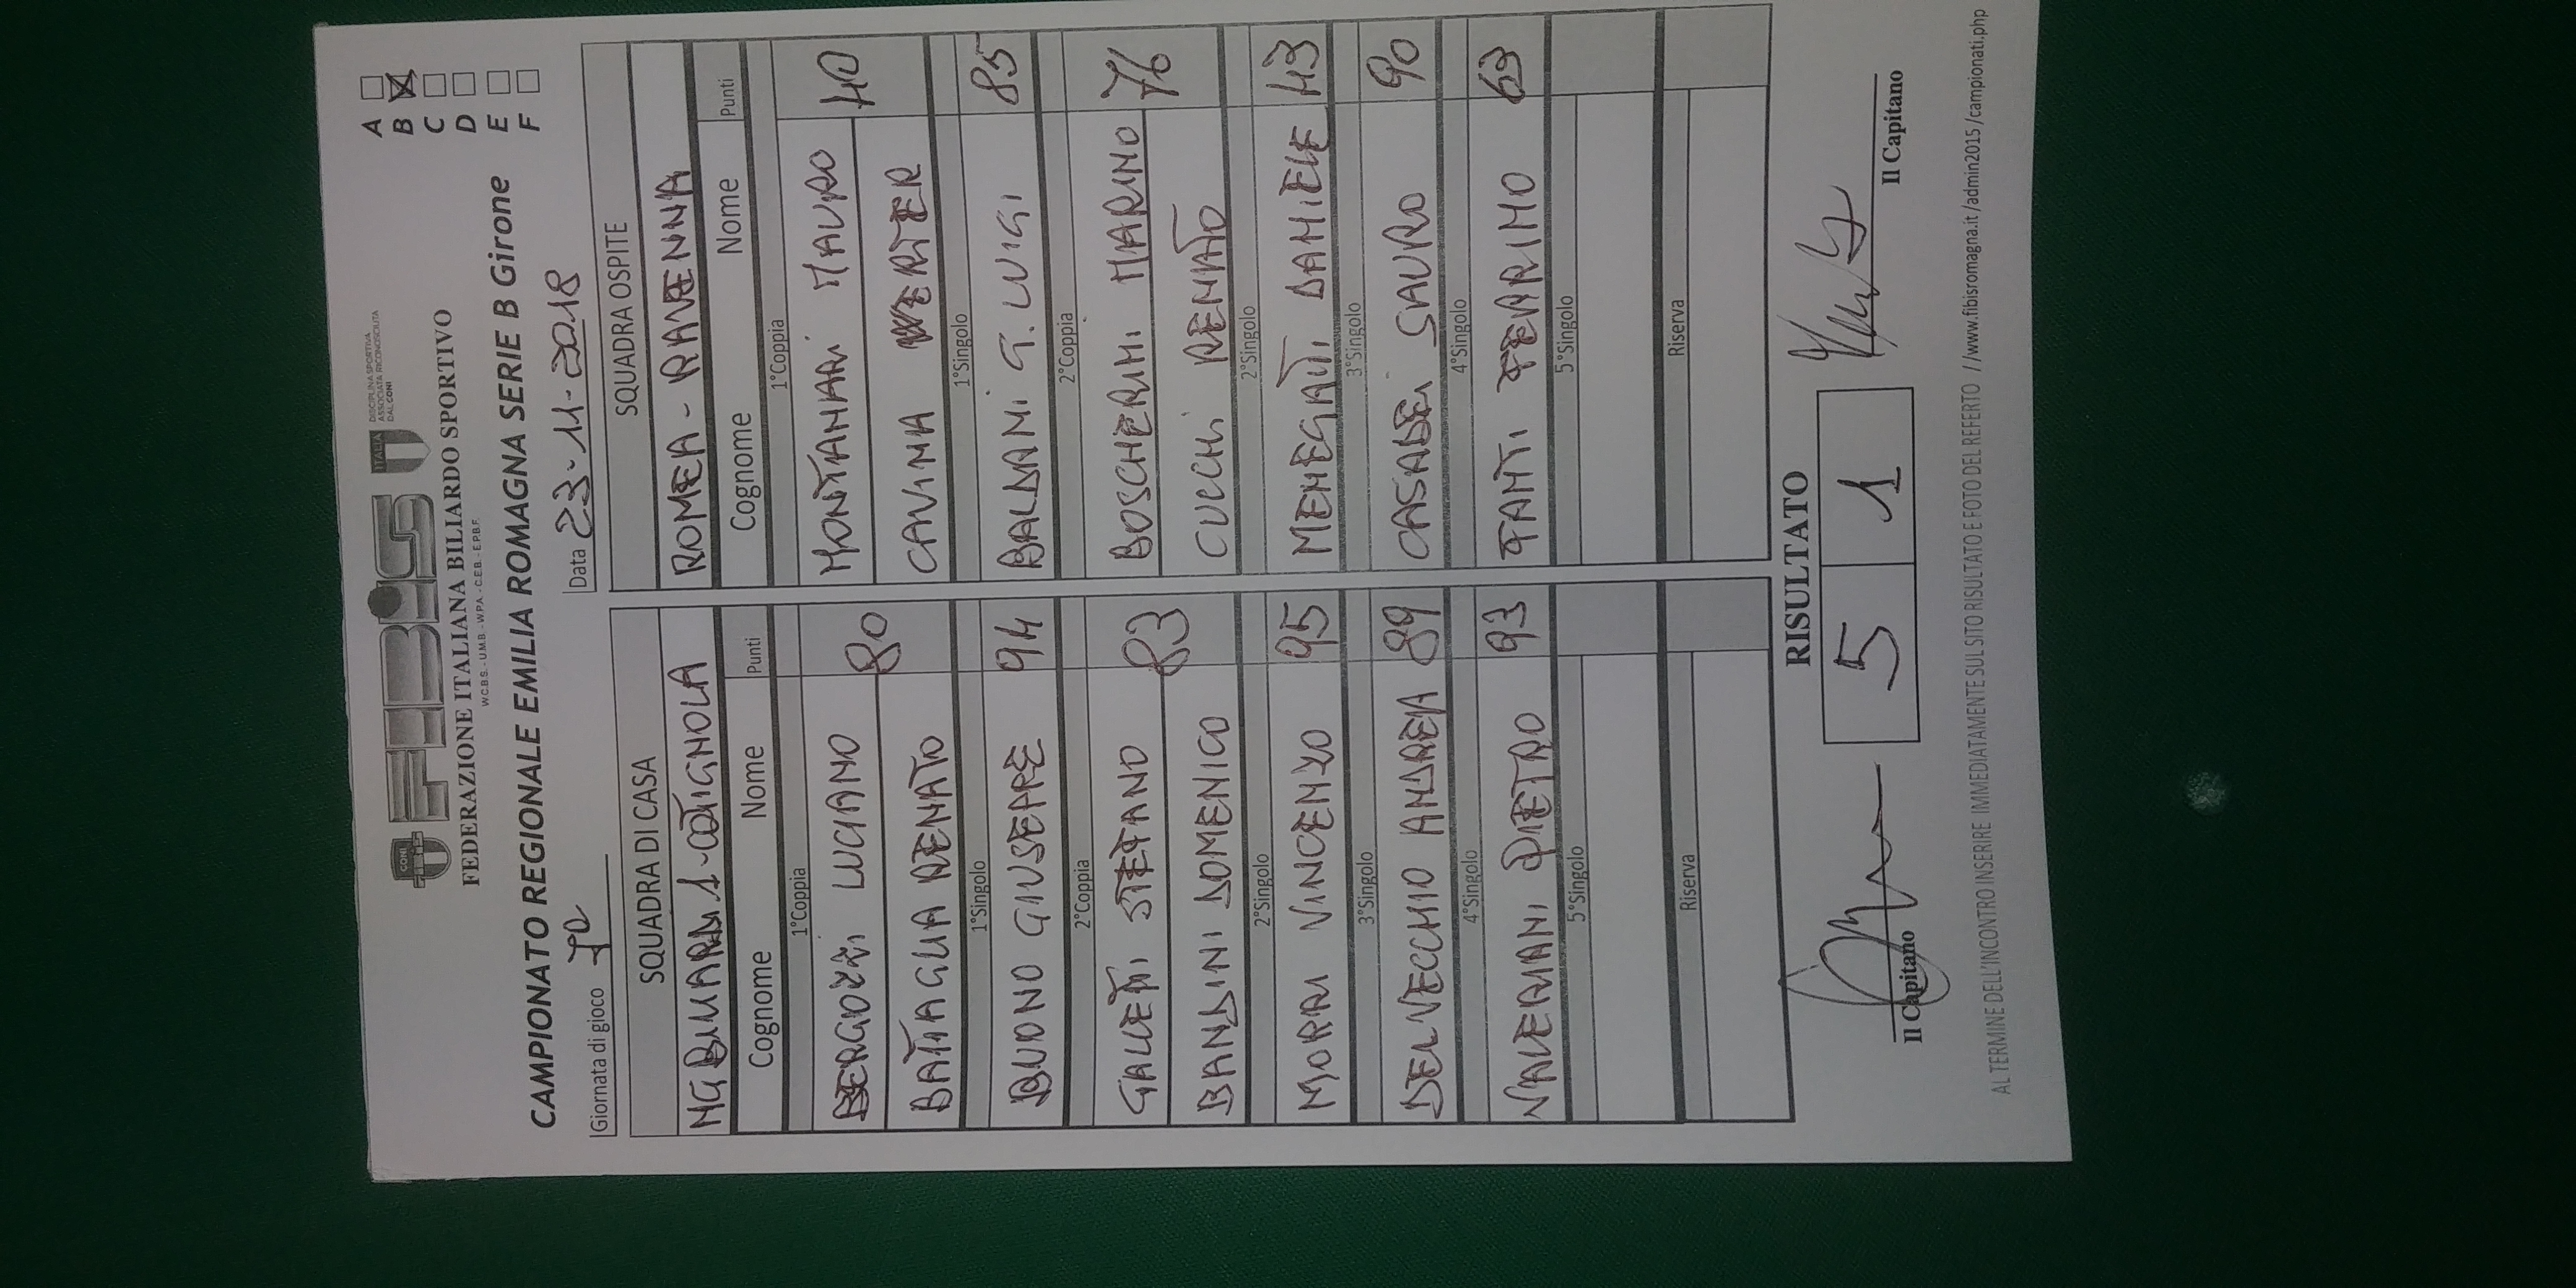 FIBIS
CONI
ITALIA
DISCIPLINA SPORTIVA
ASSOCIATA RICONOSCIUTA
DAL CONI
FEDERAZIONE ITALIANA BILIARDO SPORTIVO
W.C.B.S. - U.M.B. - W.P.A. - C.E.B. - E.P.B.F.
CAMPIONATO REGIONALE EMILIA ROMAGNA SERIE B Girone
A
B
C
D
E
F
Giornata di gioco
Data 23-11-2018
SQUADRA DI CASA
COTIGNOLA
Cognome Nome Punti
1°Coppia
BERGOZZI LUCIANO 80
BATTAGLIA RENATO
1°Singolo
BUONO GIUSEPPE 94
2°Coppia
GALLETTI STEFANO 83
BANDINI DOMENICO
2°Singolo
MORRI VINCENZO 95
3°Singolo
DELVECCHIO ANDREA 89
4°Singolo
VALERIANI PIETRO 93
5°Singolo
Riserva
SQUADRA OSPITE
ROMEA - RAVENNA
Cognome Nome Punti
1°Coppia
MONTANARI MAURO 40
CAVINA WERTER
1°Singolo
BALDANI G. LUIGI 85
2°Coppia
BOSCHERINI MARINO 76
CUCCHI RENATO
2°Singolo
MENEGATTI DANIELE 43
3°Singolo
CASADEI SAURO 90
4°Singolo
FANTI TEARINO 63
5°Singolo
Riserva
RISULTATO
5 1
Il Capitano
Il Capitano
AL TERMINE DELL'INCONTRO INSERIRE IMMEDIATAMENTE SUL SITO RISULTATO E FOTO DEL REFERTO //www.fibisromagna.it/admin2015/campionati.php